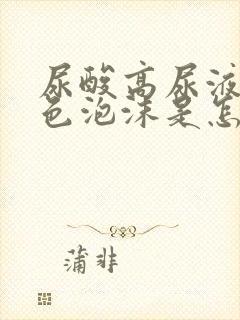 尿酸高尿液
色泡沫是怎
蒲非